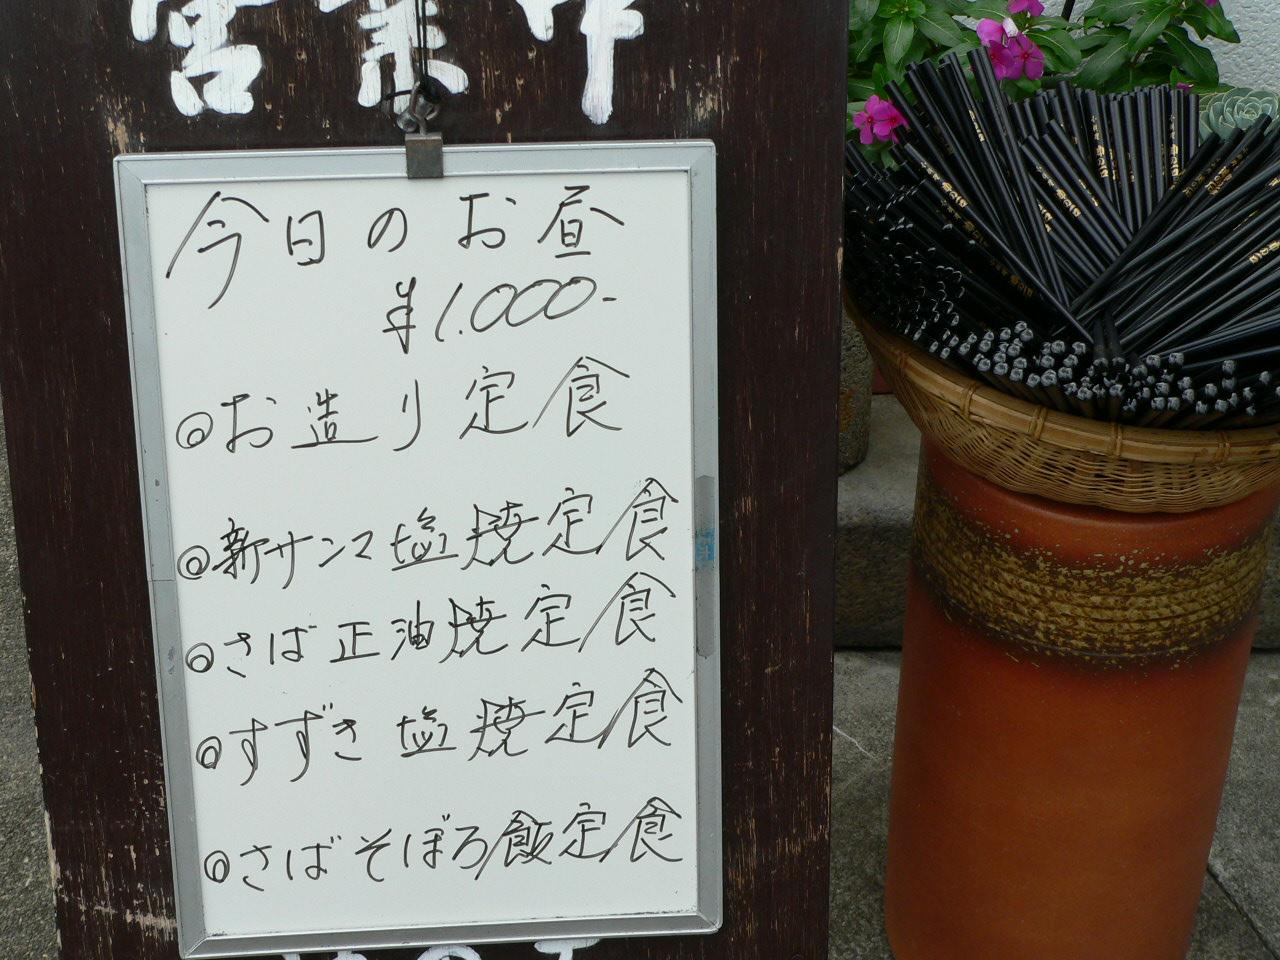 営業中
今日のお昼
¥1.000-
◎お造り定食
◎新サンマ塩焼定食
◎さば正油焼定食
◎すずき塩焼定食
◎さばそぼろ飯定食